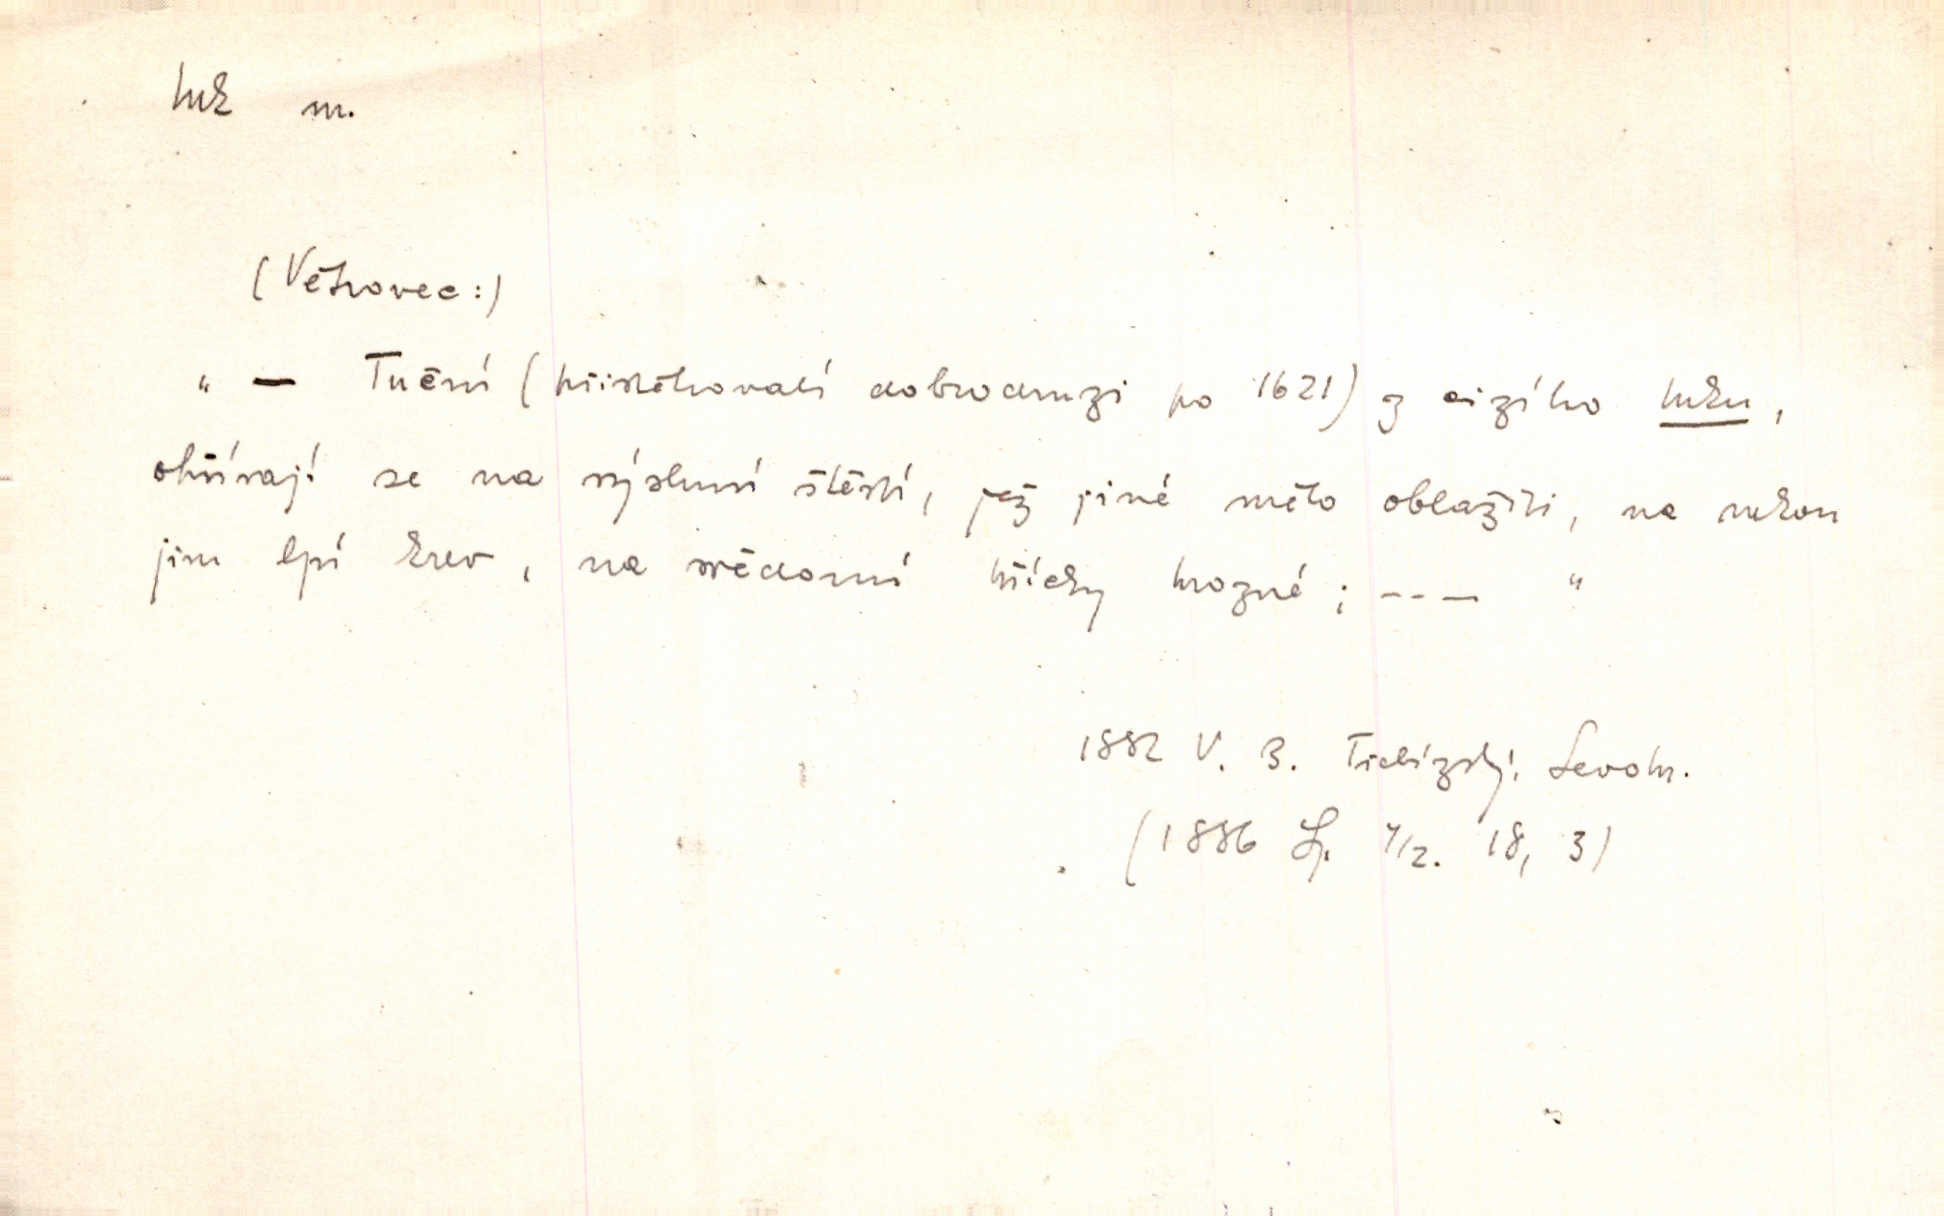 tuk m.
(Větrovec:)
„ — Tuční (přistěhovalí dobrodruzi po 1621) z cizího tuku,
ohřívají se na výsluní štěstí, jež jiné mělo oblažiti, na rukou
jim lpí krev, na svědomí hříchy hrozné; --— "
1882 V. B. Třebízský,
(1886 Sp. 18, 3)